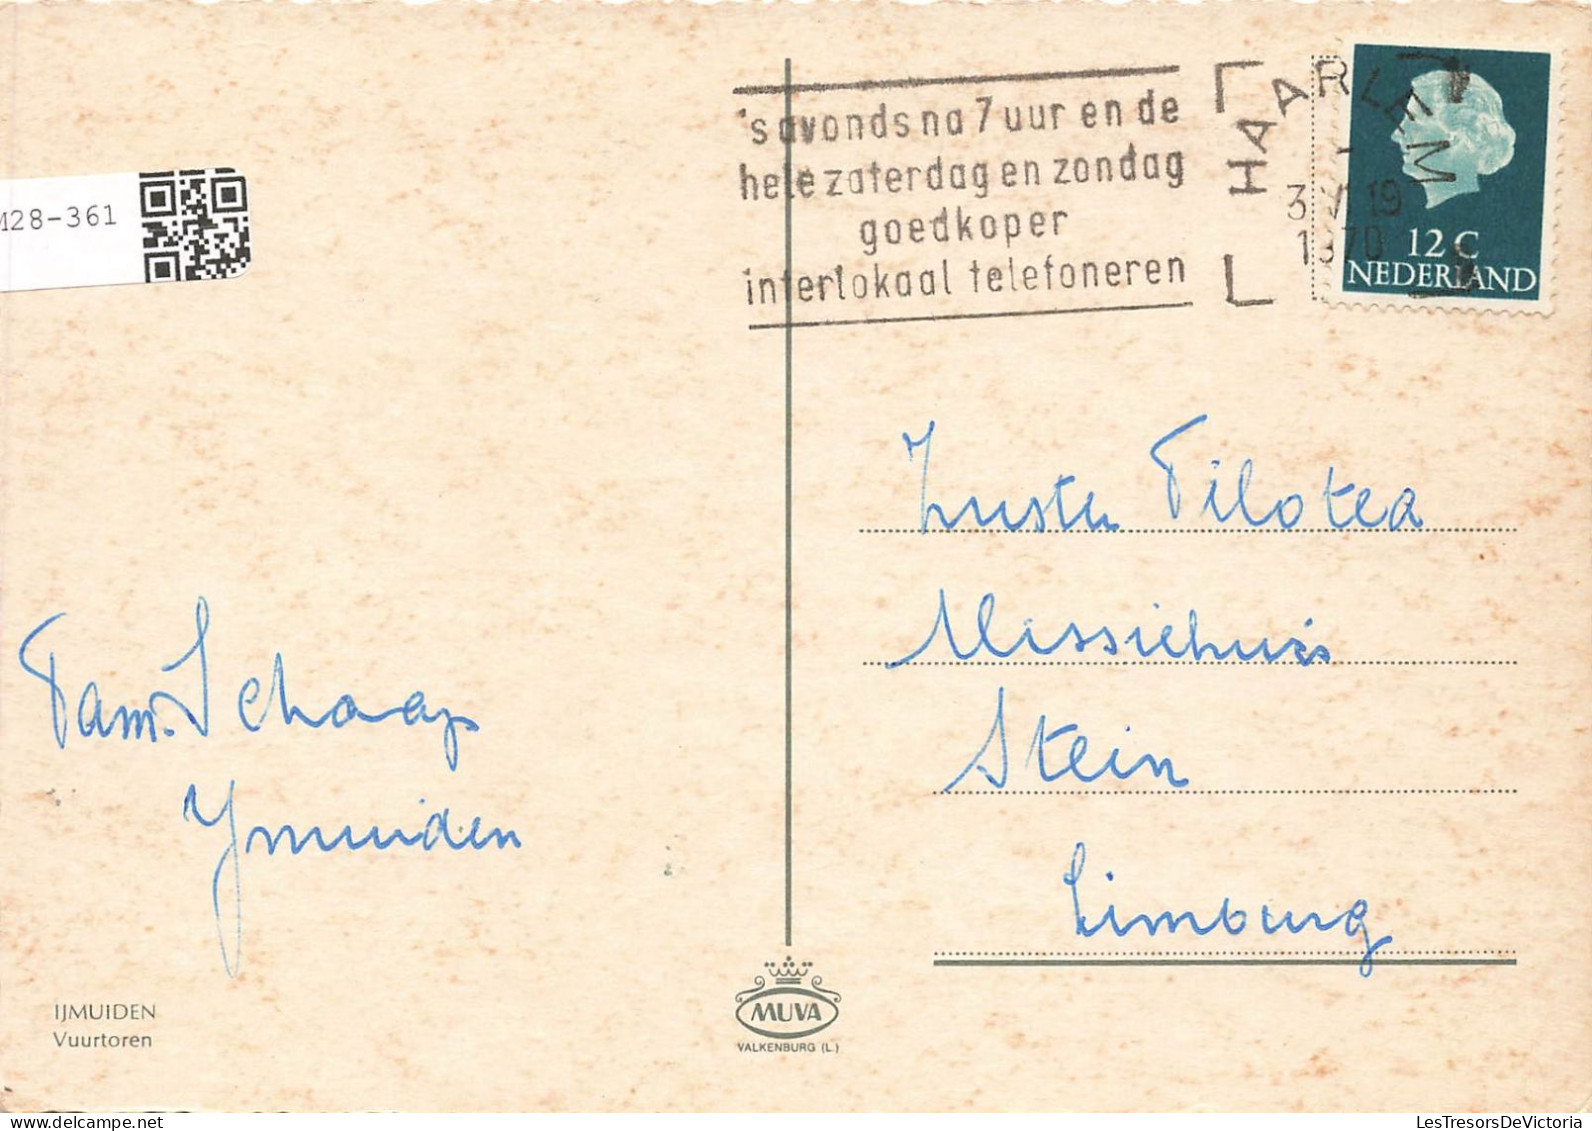 M28-361
's avonds na 7 uur en de
hele zaterdag en zondag
goedkoper
interlokaal telefoneren
HAARLEM
3 VI 19
1970
12 C
NEDERLAND
Zuster Filotea
Missiehuis
Stein
Limburg
Fam. Schaap
Ymuiden
IJMUIDEN
Vuurtoren
MUVA
VALKENBURG (L.)
LesTresorsDeVictoria.com